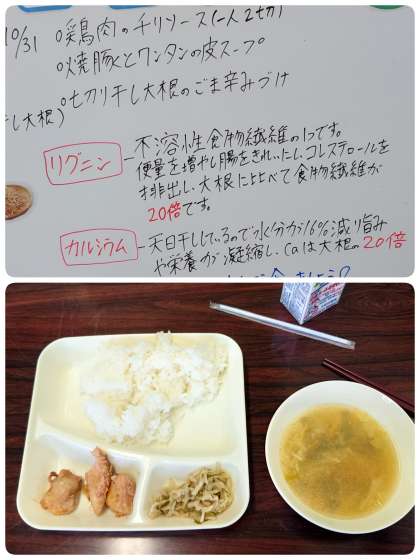 10/31 ○鶏肉のチリソース(一人2切)
○焼豚とワンタンの皮スープ
○切り干し大根のごま辛みづけ
干し大根)
リグニン ー不溶性食物繊維の1つです。
便量を増やし腸をきれいにし、コレステロールを
排出し、大根に比べて食物繊維が
20倍です。
カルシウム ー天日干ししているので水分が16%減り旨み
や栄養が凝縮し、Caは大根の20倍